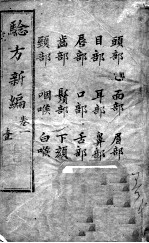 頭部 面部 眉部
目部 耳部 鼻部
唇部 口部 舌部
齒部 鬚部 下頦
頸部 咽喉 白喉
騐方新編 卷一